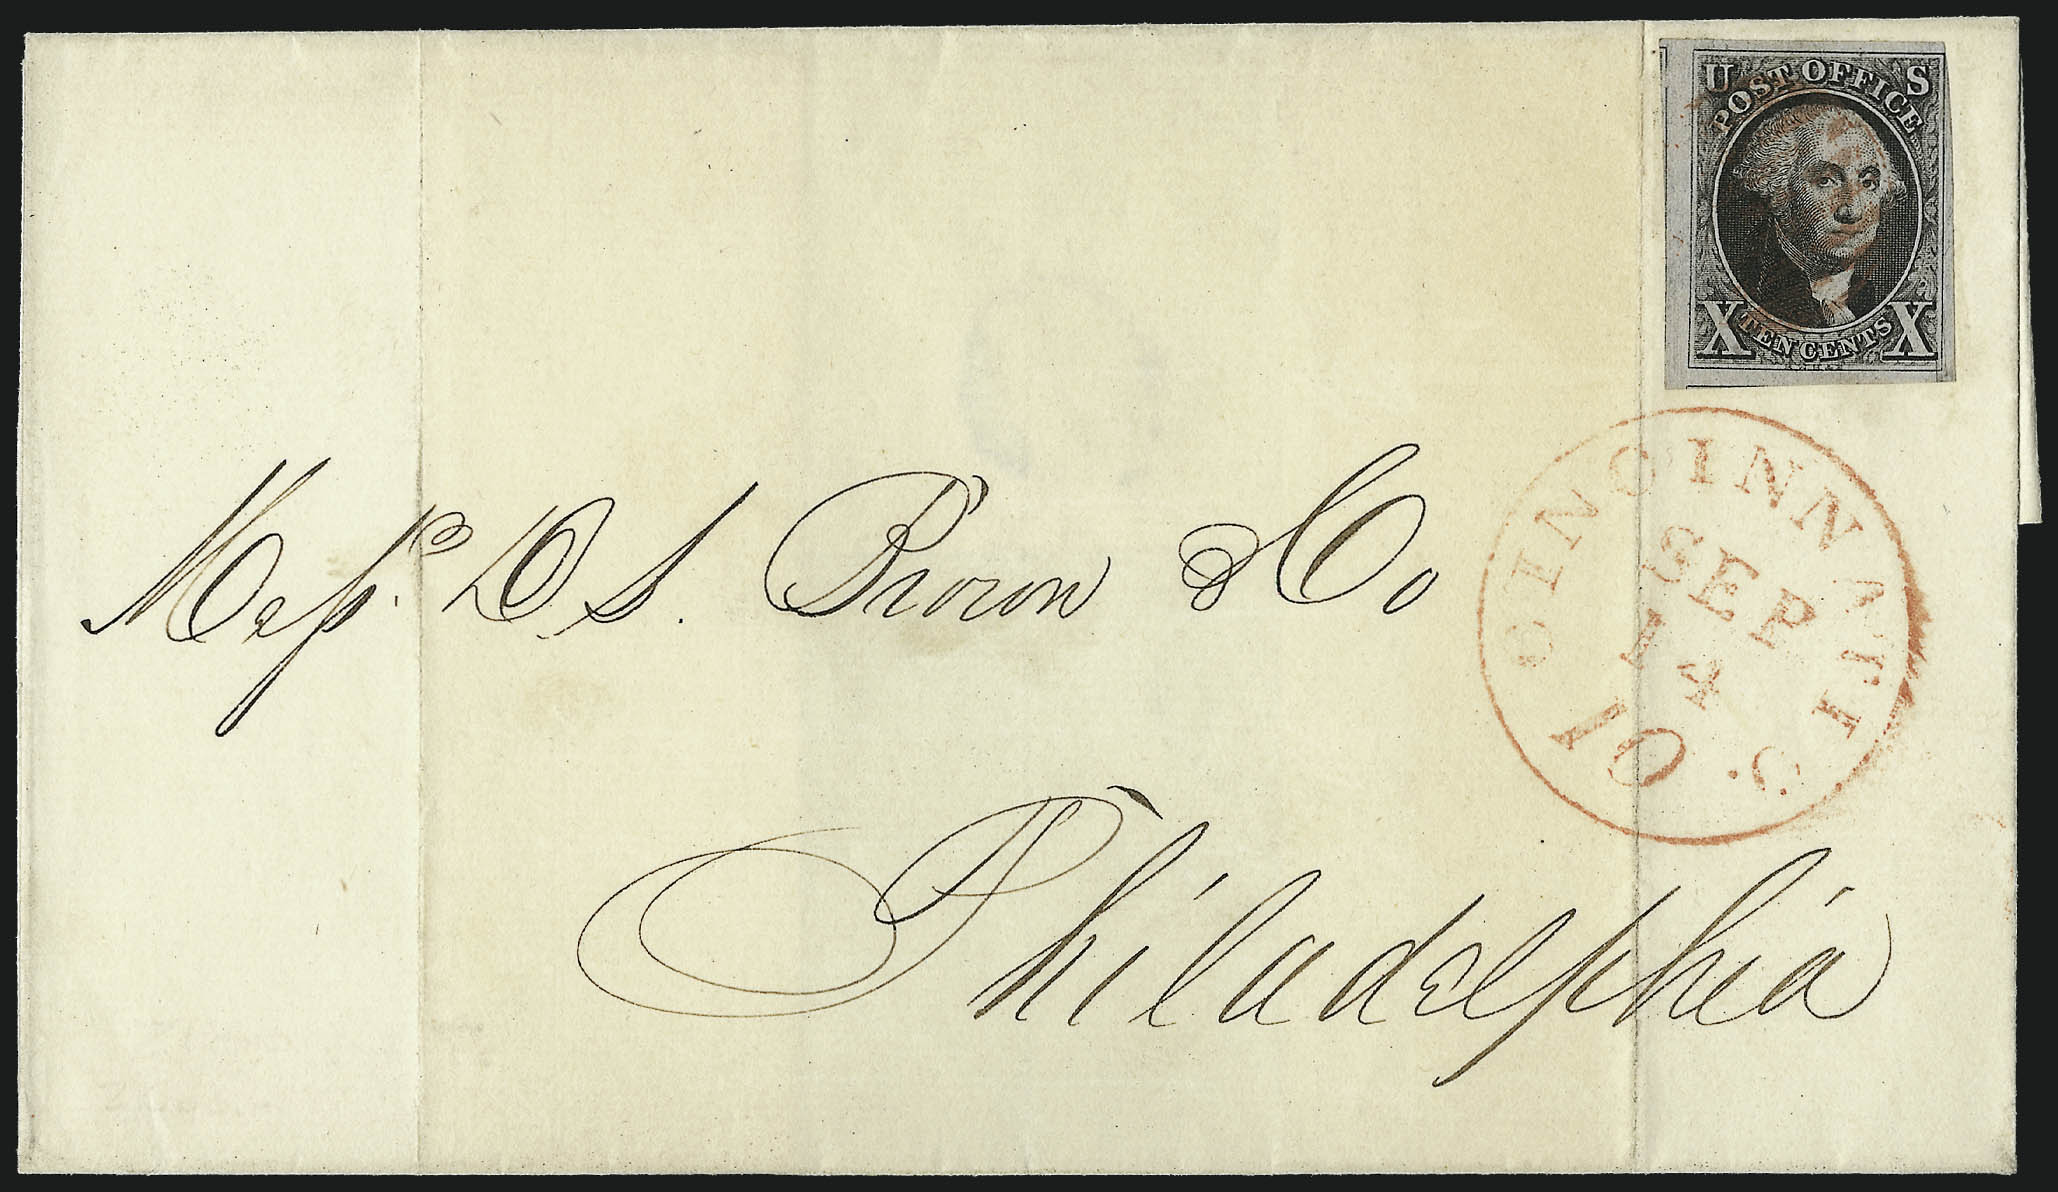 U S
POST OFFICE
X TEN CENTS X
CINCINNATI O.
SEP
14
10
Messrs. D. S. Brown & Co
Philadelphia